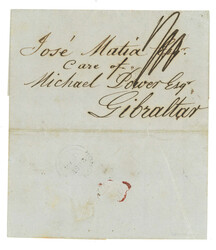 José Matia
Care of
Michael Power Esqr.
Gibraltar